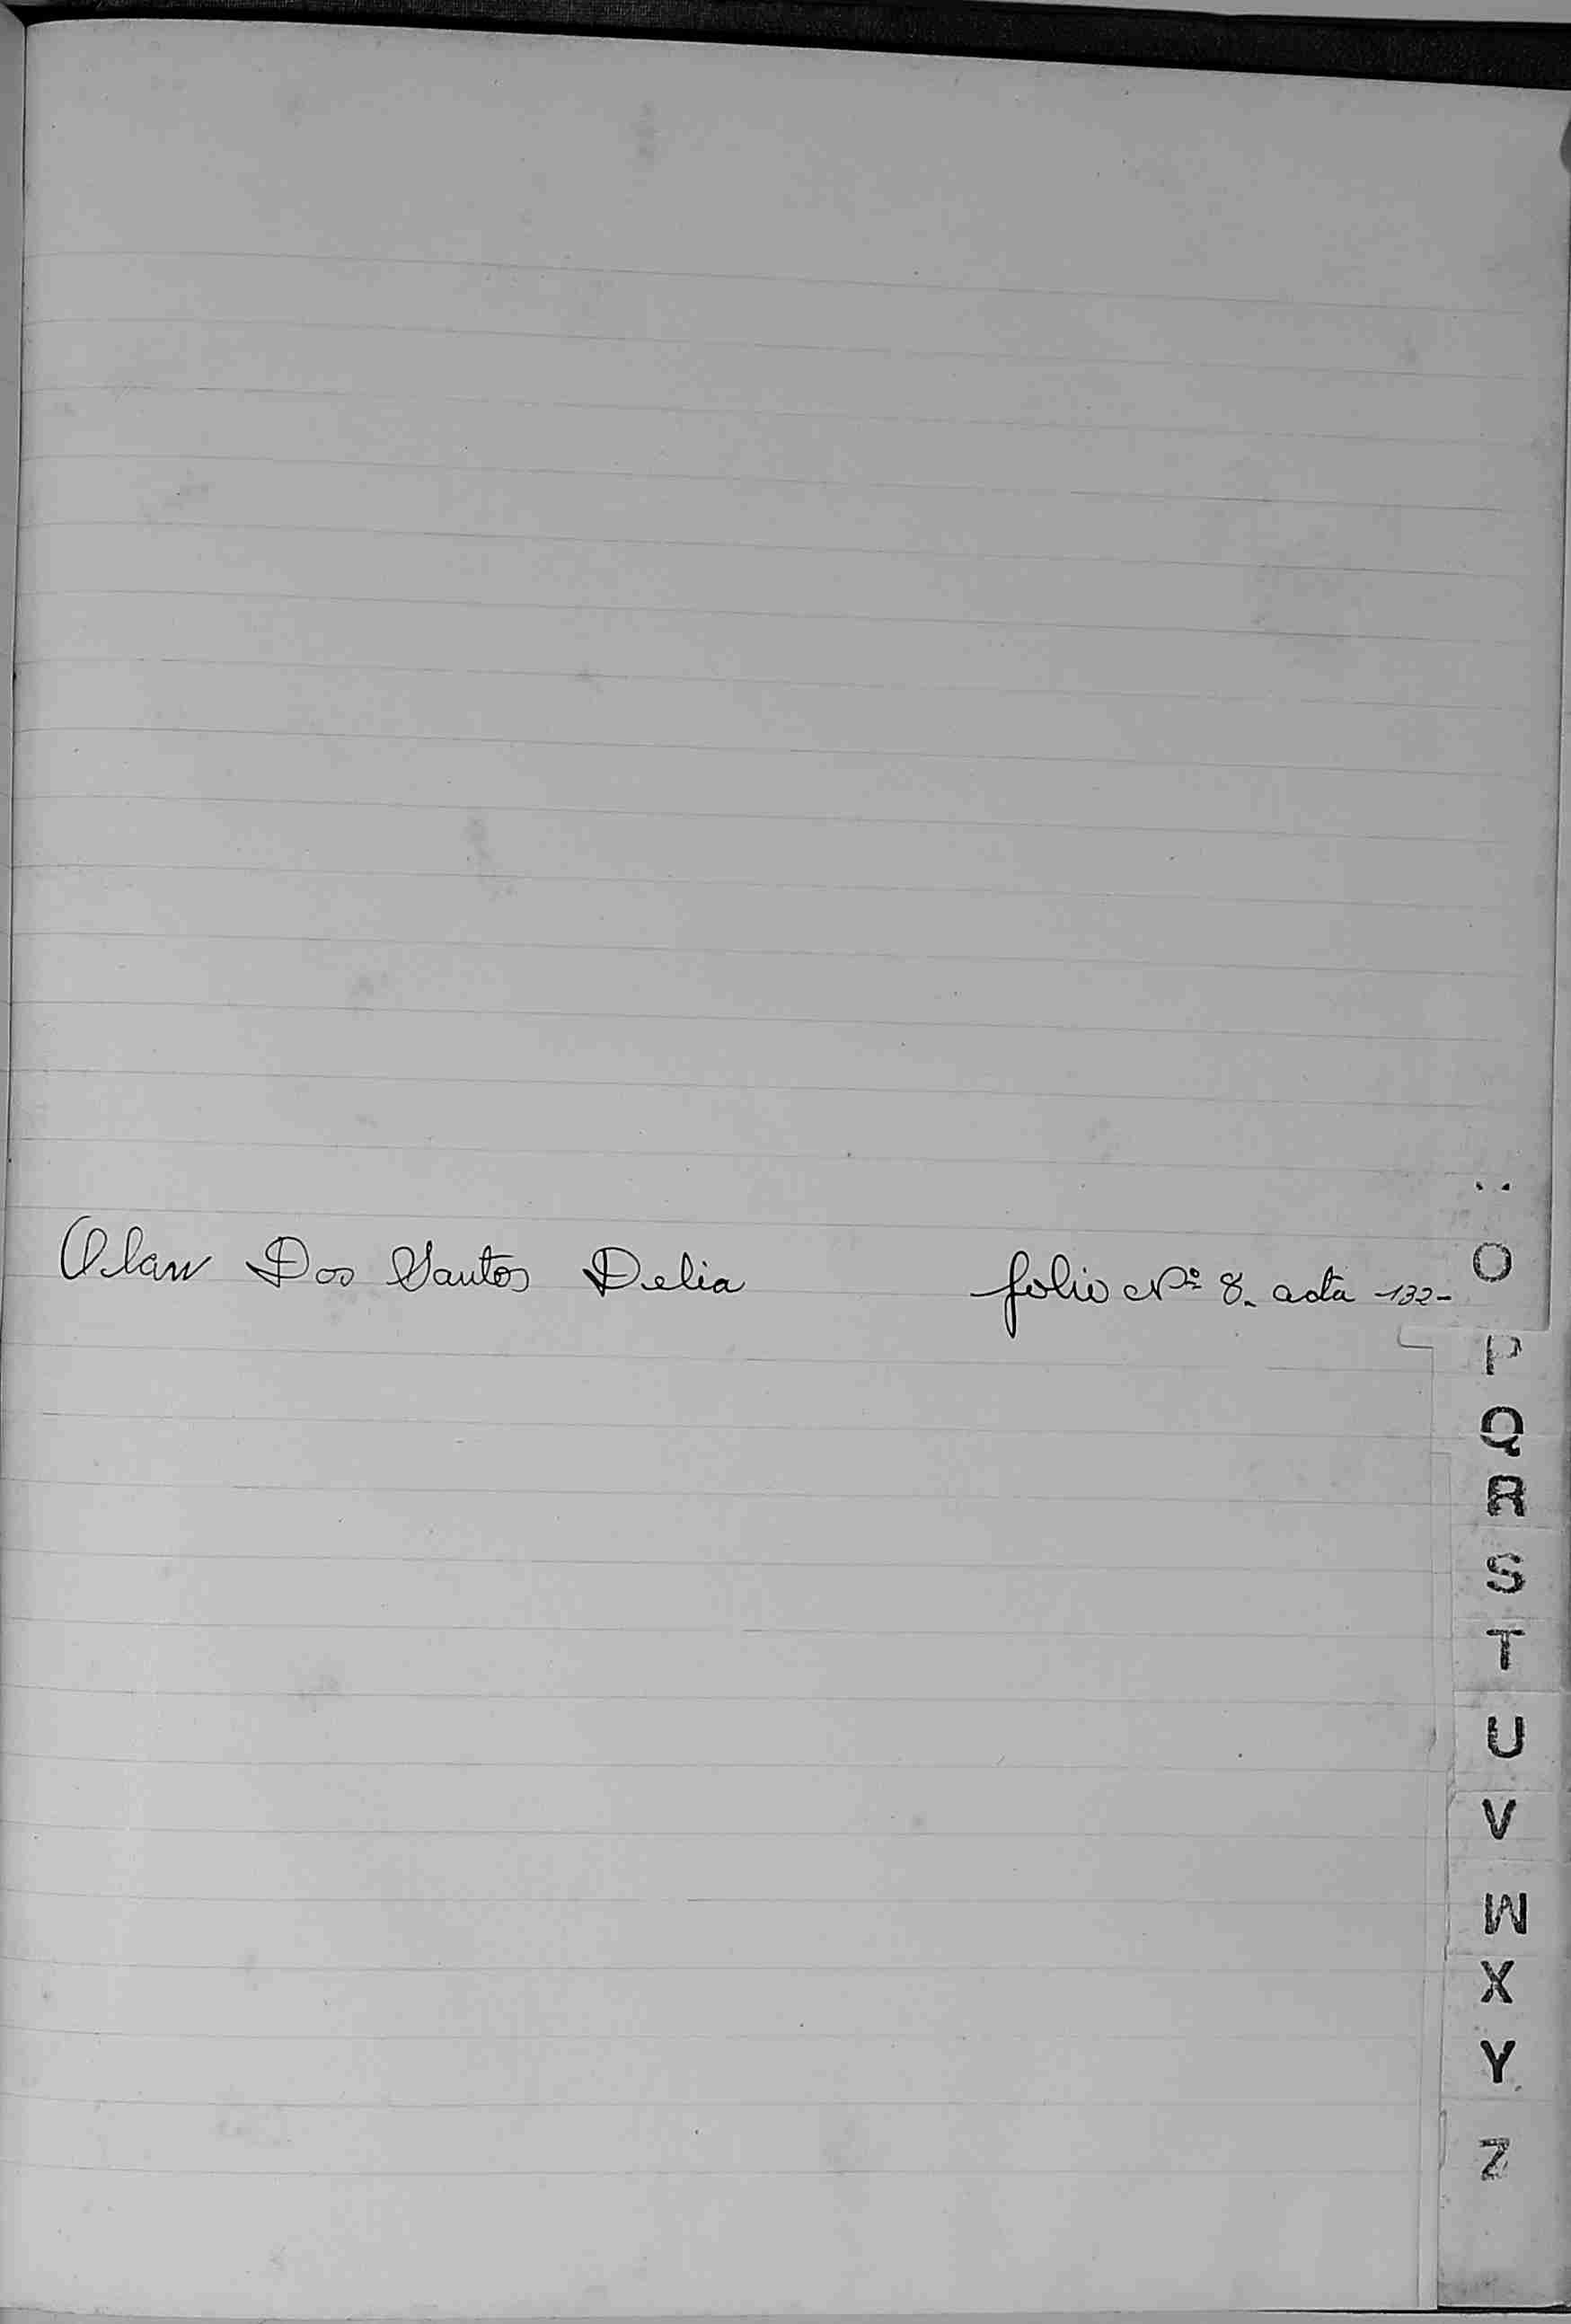 Olaw Dos Santos Delia folio Nº 8. acta -132-
O
P
Q
R
S
T
U
V
W
X
Y
Z